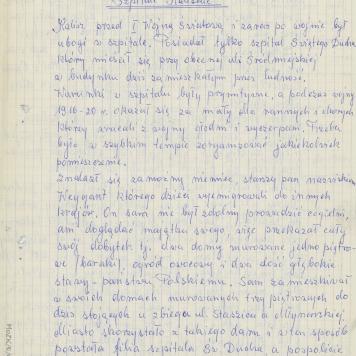 Szpital Kaliski
Kalisz przed I Wojną Światową i zaraz po wojnie był
ubogi w szpitale. Posiadał tylko szpital Świętego Ducha
który mieścił się przy obecnej uli Śródmiejskiej
w budynku dziś zamieszkałym przez ludność.
Warunki w szpitalu były prymitywne, a podczas wojny
1916-20 r. okazał się za mały dla rannych i chorych
którzy wracali z wojny głodni i wyczerpani. Trzeba
było w szybkim tempie zorganizować jakiekolwiek
pomieszczenie.
Znalazł się zamożny niemiec, starszy pan nazwiskiem
Weygant którego dzieci wyemigrowali do innych
krajów. On sam nie był zdolny prowadzić cegielni,
ani doglądać majątku swego, więc przekazał cały
swój dobytek tj. dwa domy murowane jedno piętro-
we (baraki), ogród owocowy i dwa dość głębokie
stawy - państwu Polskiemu. Sam zamieszkiwał
w swoich domach murowanych trzy piętrowych do
dziś stojących u zbiegu ul. Staszica a Młynarskiej
Miasto skorzystało z takiego daru i w ten sposób
powstała filia szpitala Św. Ducha a pospolicie